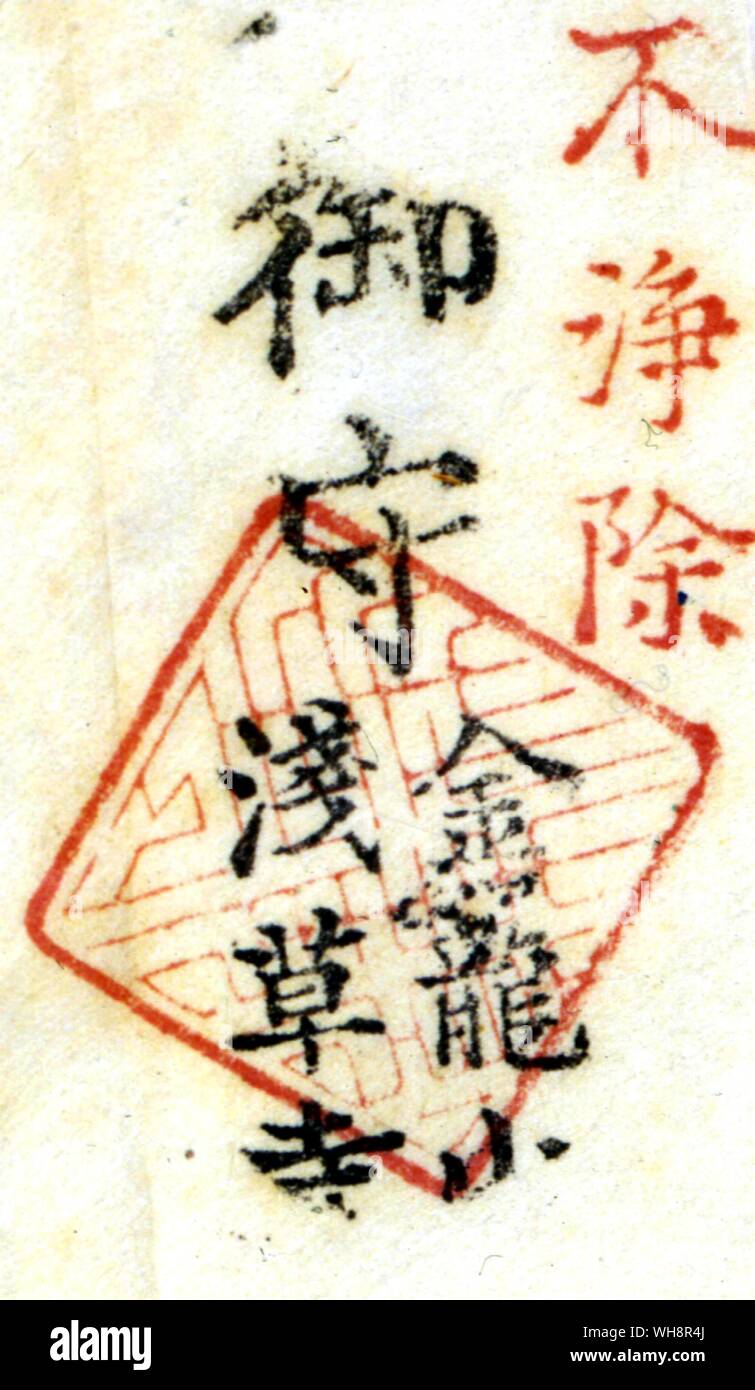 不浄除
御守
金龍山
淺草寺
alamy
Image ID: WH8R4J
www.alamy.com